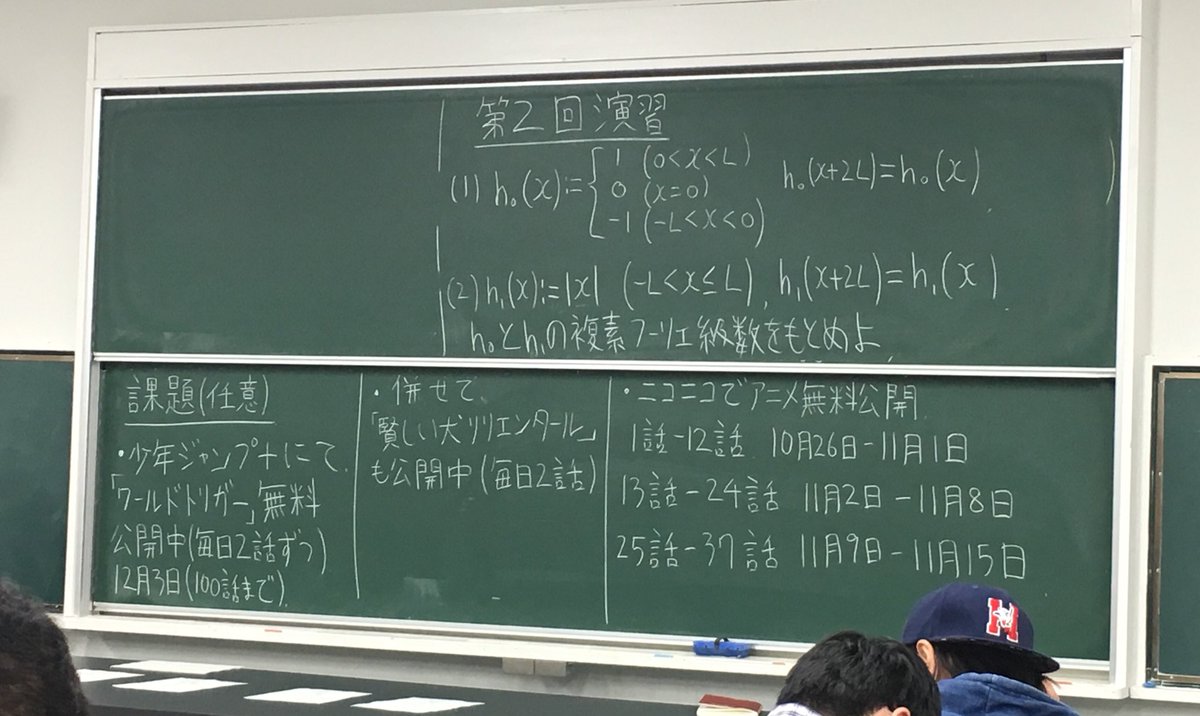 第2回演習
(1) h₀(x):={ 1 (0<x<L)
0 (x=0)
-1 (-L<x<0)
h₀(x+2L)=h₀(x)
(2) h₁(x):=|x| (-L<x≤L), h₁(x+2L)=h₁(x)
h₀とh₁の複素フーリエ級数をもとめよ
課題(任意)
・少年ジャンプ+にて、
「ワールドトリガー」無料
公開中(毎日2話ずつ)
12月3日(100話まで).
・併せて、
「賢い犬リリエンタール」
も公開中(毎日2話)
・ニコニコでアニメ無料公開
1話-12話 10月26日-11月1日
13話-24話 11月2日-11月8日
25話-37話 11月9日-11月15日
H